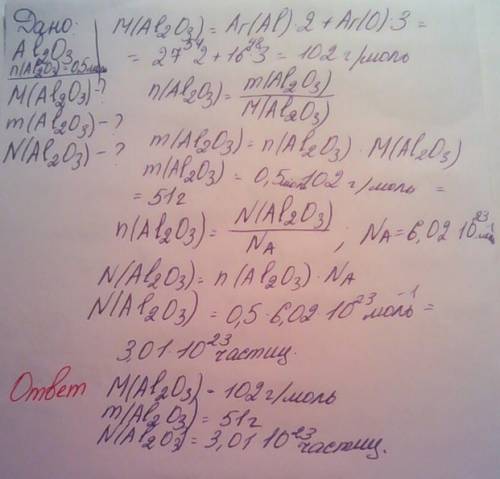 Дано:
Al₂O₃
n(Al₂O₃)=0,5моль
M(Al₂O₃)-?
m(Al₂O₃)-?
N(Al₂O₃)-?
M(Al₂O₃)=Ar(Al)·2+Ar(O)·3=
=27⁵⁴·2+16⁴⁸·3=102 г/моль
n(Al₂O₃)=m(Al₂O₃)/M(Al₂O₃)
m(Al₂O₃)=n(Al₂O₃)·M(Al₂O₃)
m(Al₂O₃)=0,5моль·102 г/моль=
=51г
n(Al₂O₃)=N(Al₂O₃)/N_A; N_A=6,02·10²³моль⁻¹
N(Al₂O₃)=n(Al₂O₃)·N_A
N(Al₂O₃)=0,5·6,02·10²³моль⁻¹=
3,01·10²³частиц.
Ответ M(Al₂O₃)-102г/моль
m(Al₂O₃)=51г
N(Al₂O₃)=3,01·10²³частиц.